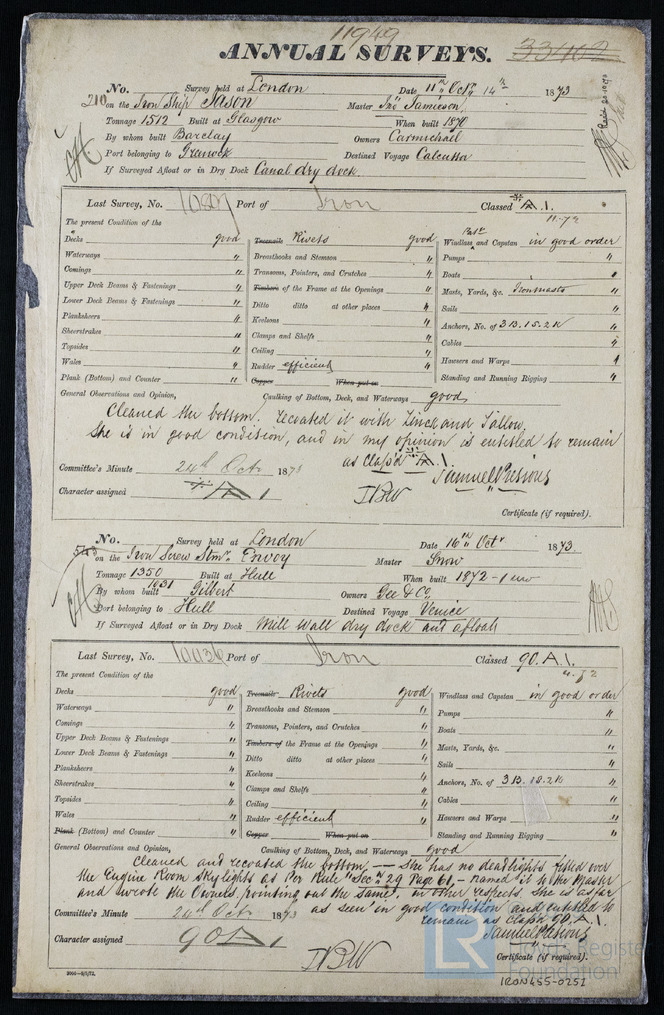 11949
ANNUAL SURVEYS. 33402
No. Survey held at London Date 11th Octr 14th 1873
210 on the Iron Ship Jason Master Jno Jamieson
Tonnage 1512 Built at Glasgow When built 1870
By whom built Barclay Owners Carmichael
Port belonging to Greenock Destined Voyage Calcutta
If Surveyed Afloat or in Dry Dock Canal dry dock.
Last Survey, No. Port of Iron Classed A.1.
11-72
The present Condition of the
Decks good Treenails Rivets good Windlass and Capstan in good order
Waterways " Breasthooks and Stemson " Pumps "
Comings " Transoms, Pointers, and Crutches " Boats "
Upper Deck Beams & Fastenings " Timbers of the Frame at the Openings " Masts, Yards, &c. Ironmasts "
Lower Deck Beams & Fastenings " Ditto ditto at other places " Sails "
Planksheers " Keelsons " Anchors, No. of 3B.1S.2K "
Sheerstrakes " Clamps and Shelfs " Cables "
Topsides " Ceiling " Hawsers and Warps "
Wales " Rudder efficient " Standing and Running Rigging "
Plank (Bottom) and Counter " Copper When put on
General Observations and Opinion, Caulking of Bottom, Deck, and Waterways good
Cleaned the bottom. recoated it with Zinck and Tallow.
She is in good condition, and in my opinion is entitled to remain
as Class'd A.1.
Committee's Minute 24th Octr 1873
Character assigned A1 IBW
Certificate (if required).
No. Survey held at London Date 16th Octr 1873.
on the Iron Screw Stmr. Envoy Master Snow
Tonnage 1350 Built at Hull When built 1872
1031
By whom built Gilbert Owners Gee & Co.
Port belonging to Hull Destined Voyage Venice
If Surveyed Afloat or in Dry Dock Mill Wall dry dock and afloat
Last Survey, No. Port of Iron Classed 90.A.1.
The present Condition of the
Decks good Treenails Rivets good Windlass and Capstan in good order
Waterways " Breasthooks and Stemson " Pumps "
Comings " Transoms, Pointers, and Crutches " Boats "
Upper Deck Beams & Fastenings " Timbers of the Frame at the Openings " Masts, Yards, &c. "
Lower Deck Beams & Fastenings " Ditto ditto at other places " Sails "
Planksheers " Keelsons " Anchors, No. of 3B.1S.2K "
Sheerstrakes " Clamps and Shelfs " Cables "
Topsides " Ceiling " Hawsers and Warps "
Wales " Rudder efficient " Standing and Running Rigging "
Plank (Bottom) and Counter " Copper When put on
General Observations and Opinion, Caulking of Bottom, Deck, and Waterways good
Cleaned and recoated the bottom — She has no deadlights fitted over
the Engine Room skylights as per Rule "Sec" 29 Page 61 - named it to the Master
and wrote the Owners pointing out the same, in other respects she is as far
as seen in good condition and entitled to
remain as class'd 90.A.1.
Committee's Minute 24th Octr 1873
Character assigned 90A1 IBW
Lloyd's Register
Foundation
Certificate (if required).
IRON455-0251